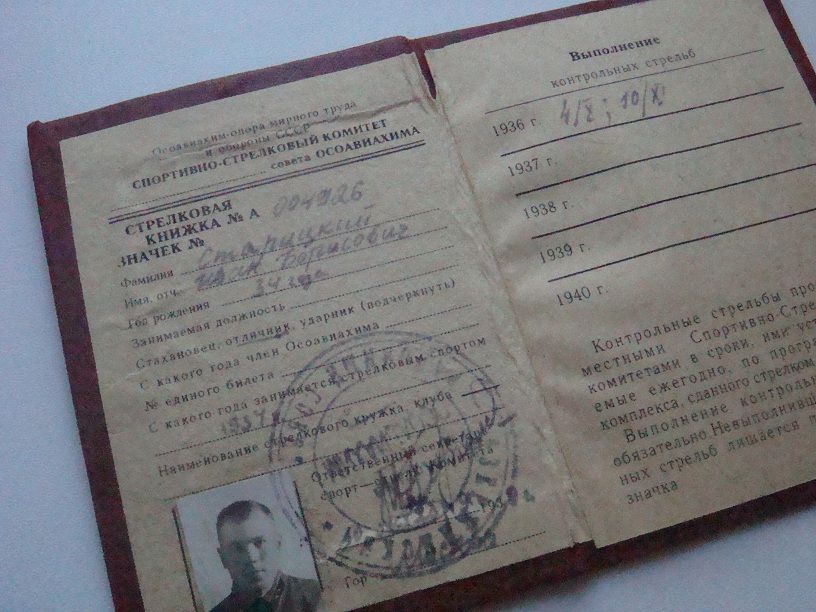 Осоавиахим-опора мирного труда
и обороны СССР
СПОРТИВНО-СТРЕЛКОВЫЙ КОМИТЕТ
совета ОСОАВИАХИМА
СТРЕЛКОВАЯ
КНИЖКА № А 004926
ЗНАЧЕК №
Фамилия Старицкий
Имя, отч. Иван Борисович
Год рождения 34 года
Занимаемая должность
Стахановец, отличник, ударник (подчеркнуть)
С какого года член Осоавиахима
№ единого билета
С какого года занимается стрелковым спортом
1934 г.
Наименование стрелкового кружка, клуба
Ответственный секретарь
спорт-стрелк. комитета
193 г.
Гор
Выполнение
контрольных стрельб
1936 г. 4/X; 10/XI
1937 г.
1938 г.
1939 г.
1940 г.
Контрольные стрельбы про
местными Спортивно-Стре
комитетами в сроки, ими уст
емые ежегодно, по програ
комплекса, сданного стрелком
Выполнение контроль
обязательно. Невыполнивш
ных стрельб лишается п
значка